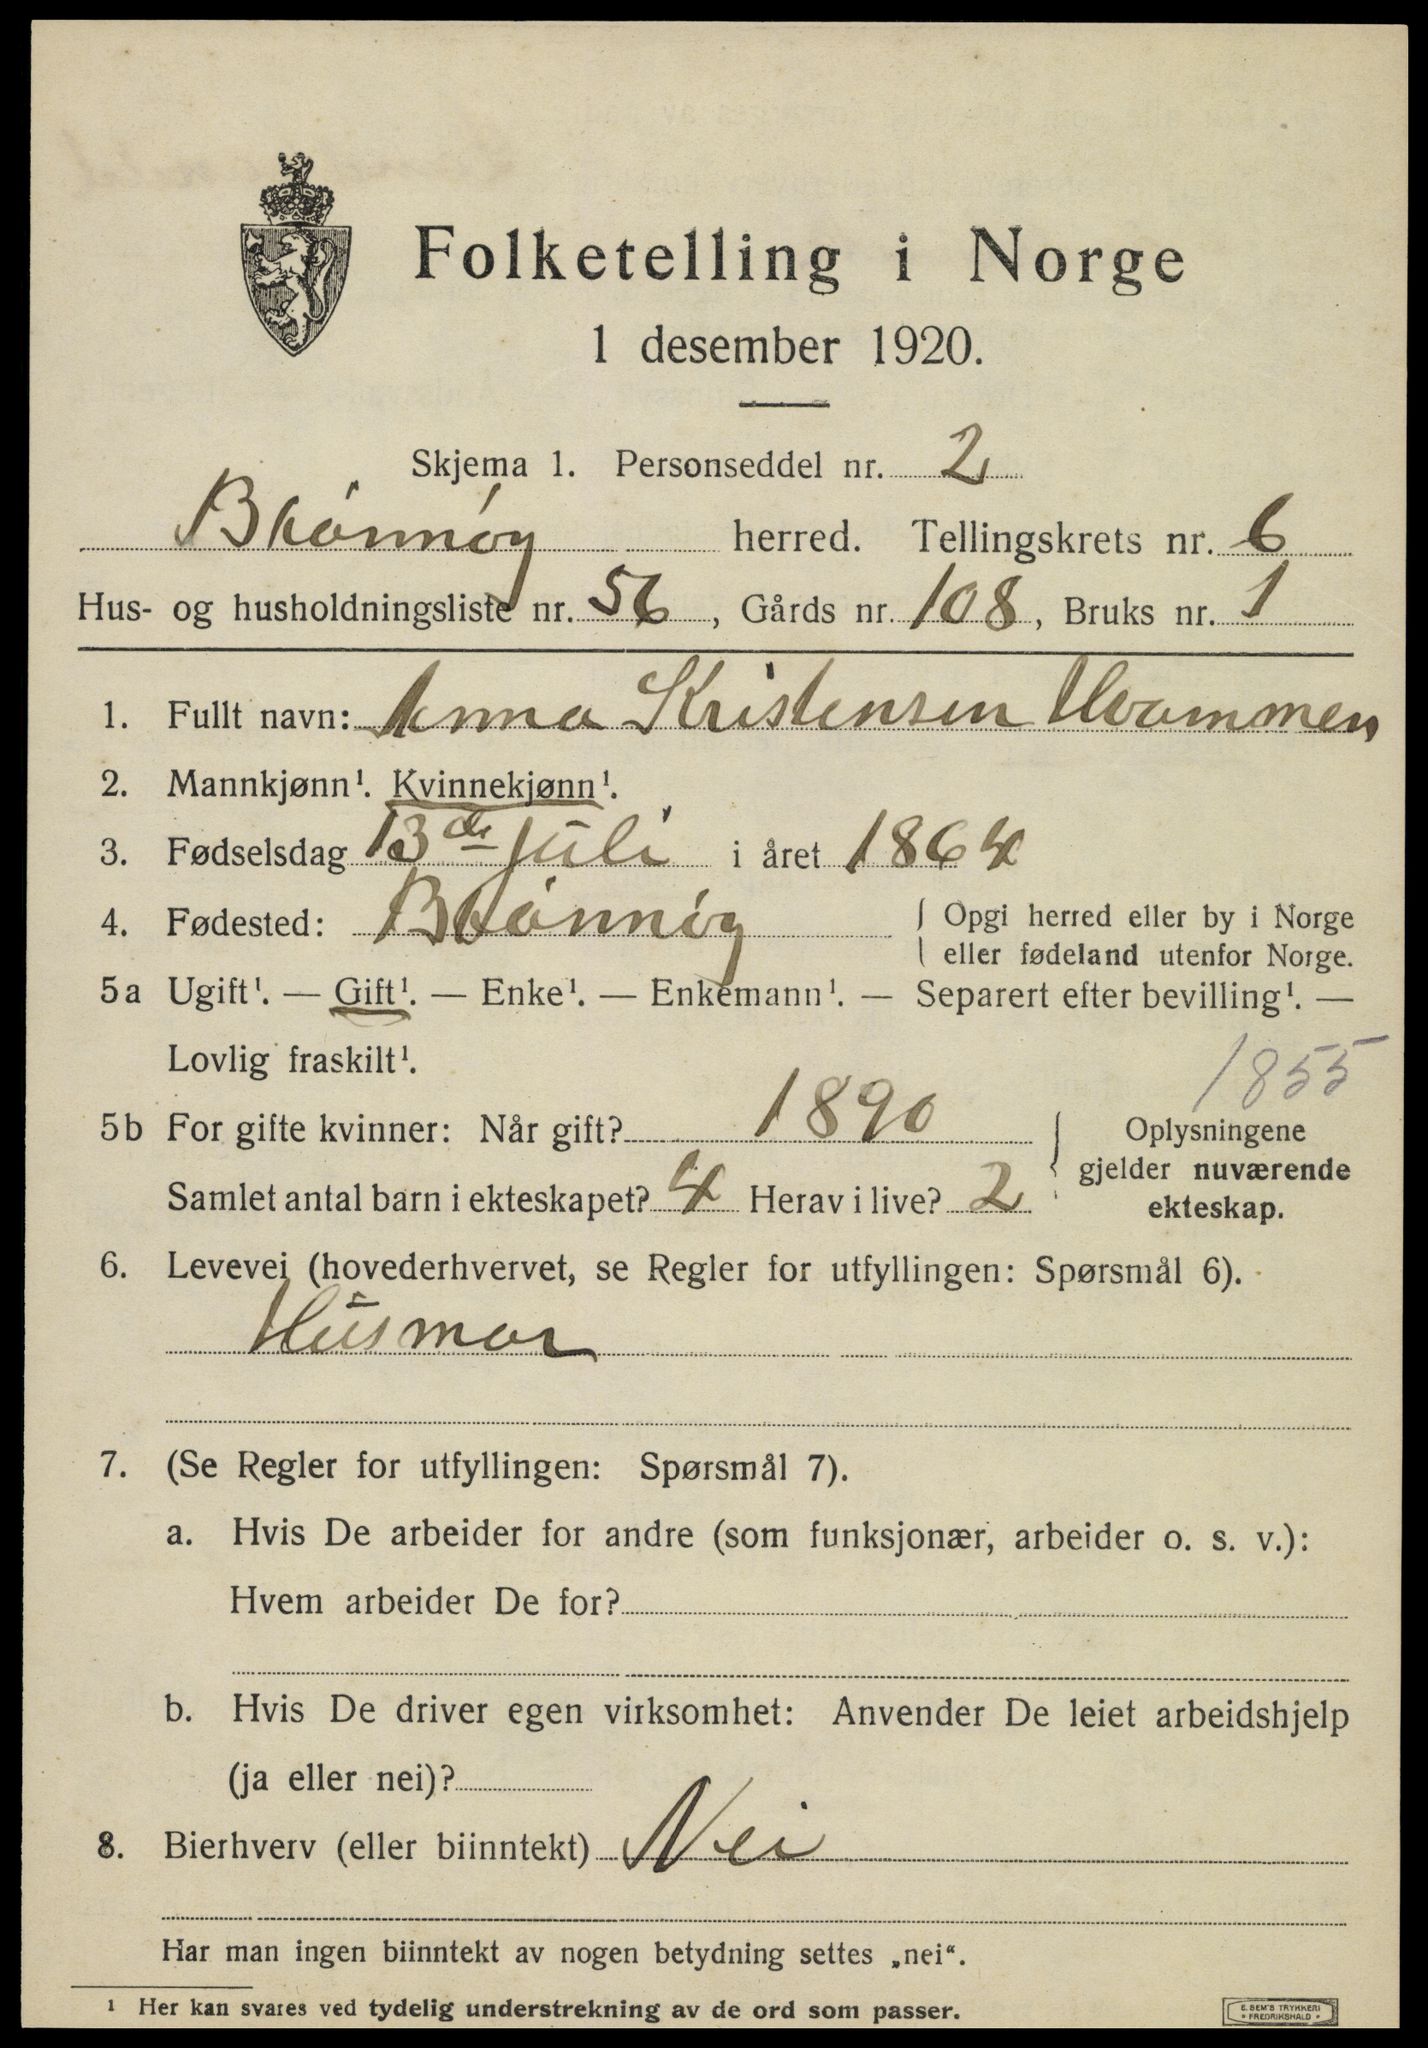 Folketelling i Norge
1 desember 1920.
Skjema 1. Personseddel nr. 2
Brønnøy herred. Tellingskrets nr. 6
Hus- og husholdningsliste nr. 56, Gårds nr. 108, Bruks nr. 1
1. Fullt navn: Anna Kristensen Hvammen
2. Mannkjønn¹. Kvinnekjønn¹.
3. Fødselsdag 13de juli i året 1864
4. Fødested: Brønnøy { Opgi herred eller by i Norge
eller fødeland utenfor Norge.
5a Ugift¹. — Gift¹. — Enke¹. — Enkemann¹. — Separert efter bevilling¹. —
Lovlig fraskilt¹.
1855
5b For gifte kvinner: Når gift? 1890 } Oplysningene
gjelder nuværende
Samlet antal barn i ekteskapet? 4 Herav i live? 2 ekteskap.
6. Levevei (hovederhvervet, se Regler for utfyllingen: Spørsmål 6).
Husmor
7. (Se Regler for utfyllingen: Spørsmål 7).
a. Hvis De arbeider for andre (som funksjonær, arbeider o. s. v.):
Hvem arbeider De for?
b. Hvis De driver egen virksomhet: Anvender De leiet arbeidshjelp
(ja eller nei)?
8. Bierhverv (eller biinntekt) Nei
Har man ingen biinntekt av nogen betydning settes „nei“.
¹ Her kan svares ved tydelig understrekning av de ord som passer.
E. SEM'S TRYKKERI
* FREDRIKSHALD *